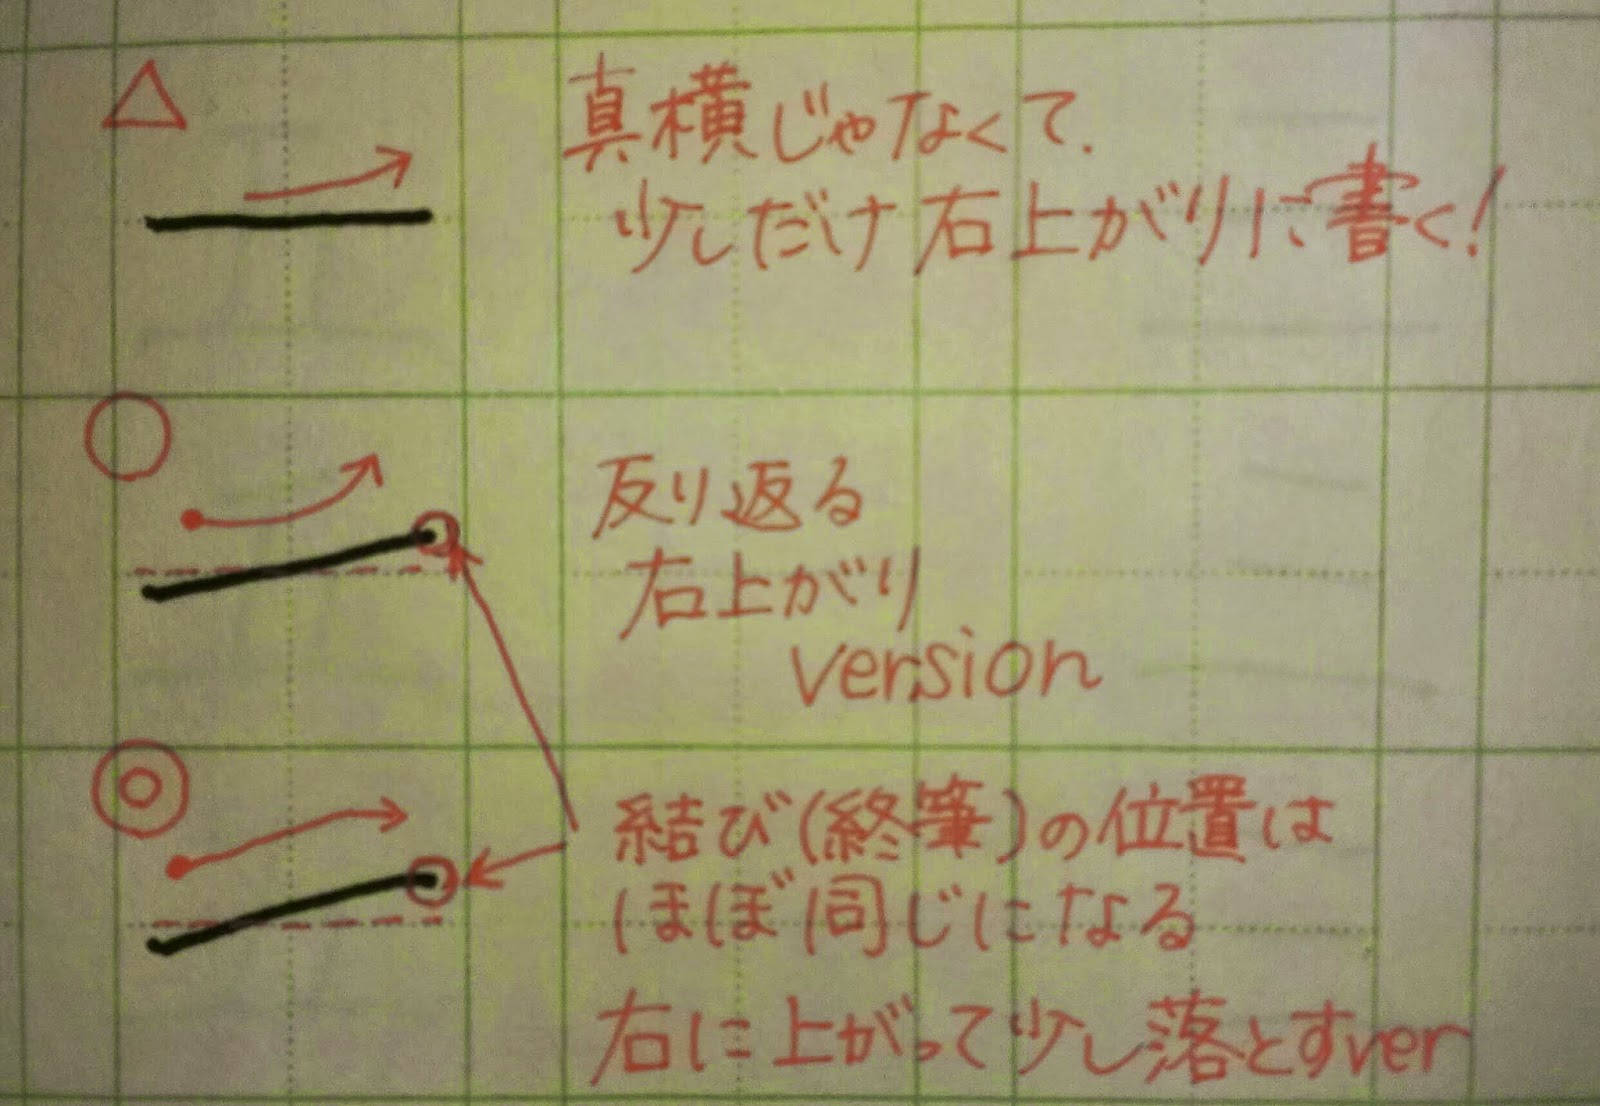 真横じゃなくて.
少しだけ右上がりに書く!
反り返る
右上がり
version
結び(終筆)の位置は
ほぼ同じになる
右に上がって少し落とすver